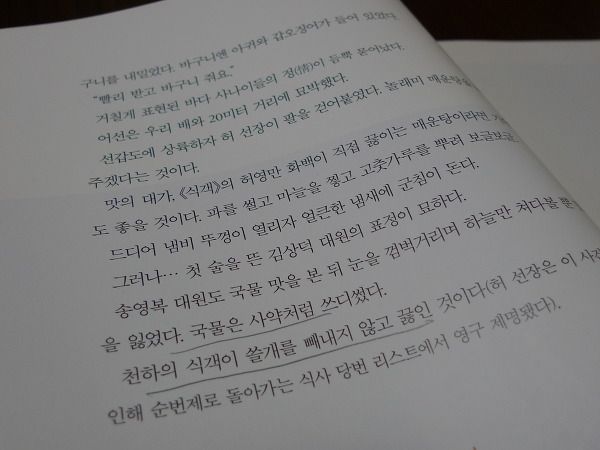 구니를 내밀었다. 바구니엔 아귀와 갑오징어가 들어 있었다.
"빨리 받고 바구니 줘요."
거칠게 표현된 바다 사나이들의 정(情)이 듬뿍 묻어났다.
어선은 우리 배와 20미터 거리에 묘박했다.
선갑도에 상륙하자 허 선장이 팔을 걷어붙였다. 놀래미 매운탕을
주겠다는 것이다.
맛의 대가, 《식객》의 허영만 화백이 직접 끓이는 매운탕이라면
도 좋을 것이다. 파를 썰고 마늘을 찧고 고춧가루를 뿌려 보글보글
드디어 냄비 뚜껑이 열리자 얼큰한 냄새에 군침이 돈다.
그러나… 첫 술을 뜬 김상덕 대원의 표정이 묘하다.
송영복 대원도 국물 맛을 본 뒤 눈을 껌벅거리며 하늘만 쳐다볼 뿐
을 잃었다. 국물은 사약처럼 쓰디썼다.
천하의 식객이 쓸개를 빼내지 않고 끓인 것이다(허 선장은 이 사건
인해 순번제로 돌아가는 식사 당번 리스트에서 영구 제명됐다).